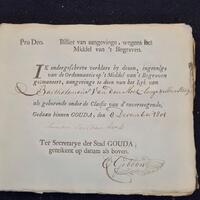 Pro Deo. Billet van aangevinge, wegens het
Middel van 't Begraven.
IK ondergeschreve verklare by deezen, ingevolge
van de Ordonnantie op 't Middel van 't Begraven
geëmaneert, aangevinge te doen van het Lyk van
Bartholomeus Van den
als gehorende onder de Classis van d'onvermogende,
Gedaan binnen GOUDA, den 8 December 1801
Ter Secretarye der Stad GOUDA,
getekent op datum als boven.